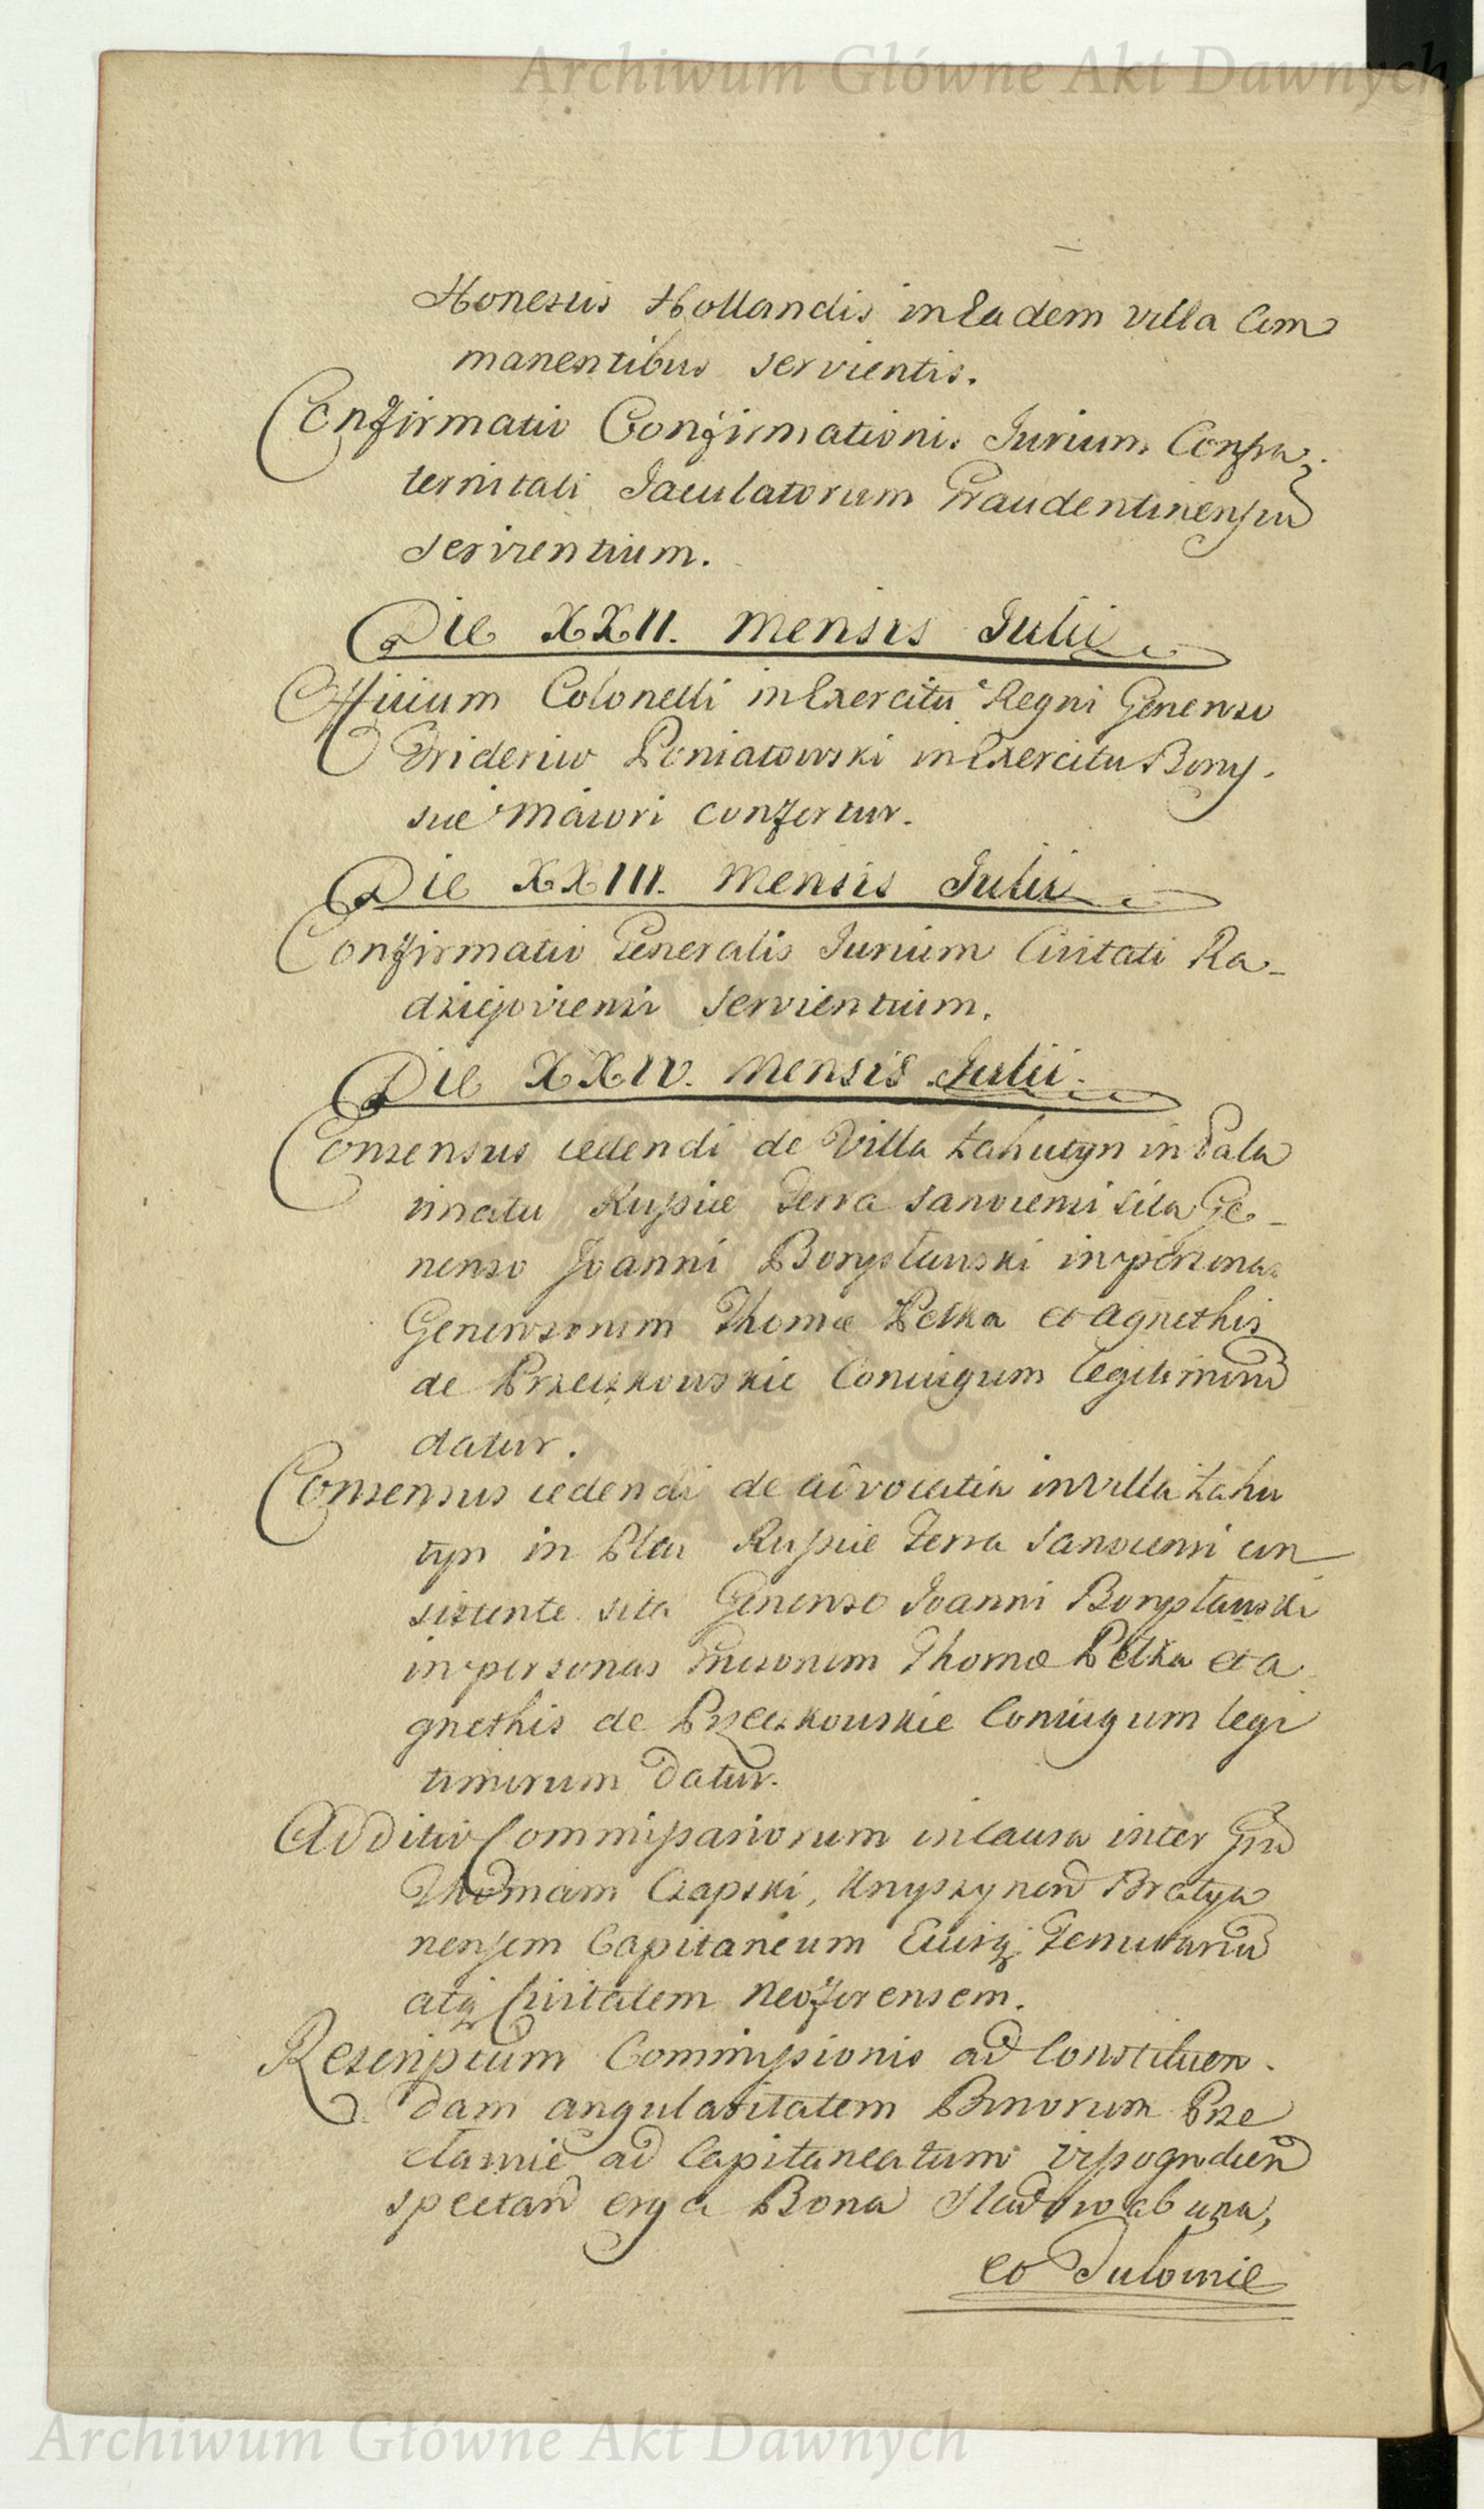 Archiwum Główne Akt Dawnych
Honestis Hollandis in Eadem villa Com
manentibus servientis.
Confirmatio Confirmationis Jurium Confra
ternitati Jaculatorum Graudentinensiu
servientium.
Die XXII. Mensis Julii
Officium Colonelli in Exercitu Regni Generoso
Friderico Poniatowski in Exercitu Boruſ.
siæ Maiori confertur.
Die XXIII. Mensis Julii
Confirmatio Generalis Jurium Civitati Ra-
dziejoviensi servientium.
Die XXIV. Mensis Julii.
Consensus cedendi de Villa Łahutyn in Pala
tinatu Ruſsiæ Terra Sanocensi sita Ge-
neroso Joanni Borysławski in personas
Generosorum Thomæ Pełka et Agnethis
de Przeczkowskie Coniugum legitimorum
datur.
Consensus cedendi de advocatia in villa Łahu
tyn in Pltu Ruſsiæ Terra Sanocensi con
sistente sita Generoso Joanni Borysławski
in personas Gnerosorum Thomæ Pełka et A
gnethis de Przeczkowskie Coniugum legi
timorum datur.
Additio Commiſsariorum in Causa inter Gnu
Thomam Czapski, Knyszynen Bratya
nensem Capitaneum Eiusq; Tenutariu
atq Civitatem Neoforensem.
Rescriptum Commiſsionis ad Constituen.
dam angularitatem Bonorum Prze
cławie ad Capitaneatum
spectan erga Bona ab una,
et Tulowice
Archiwum Główne Akt Dawnych